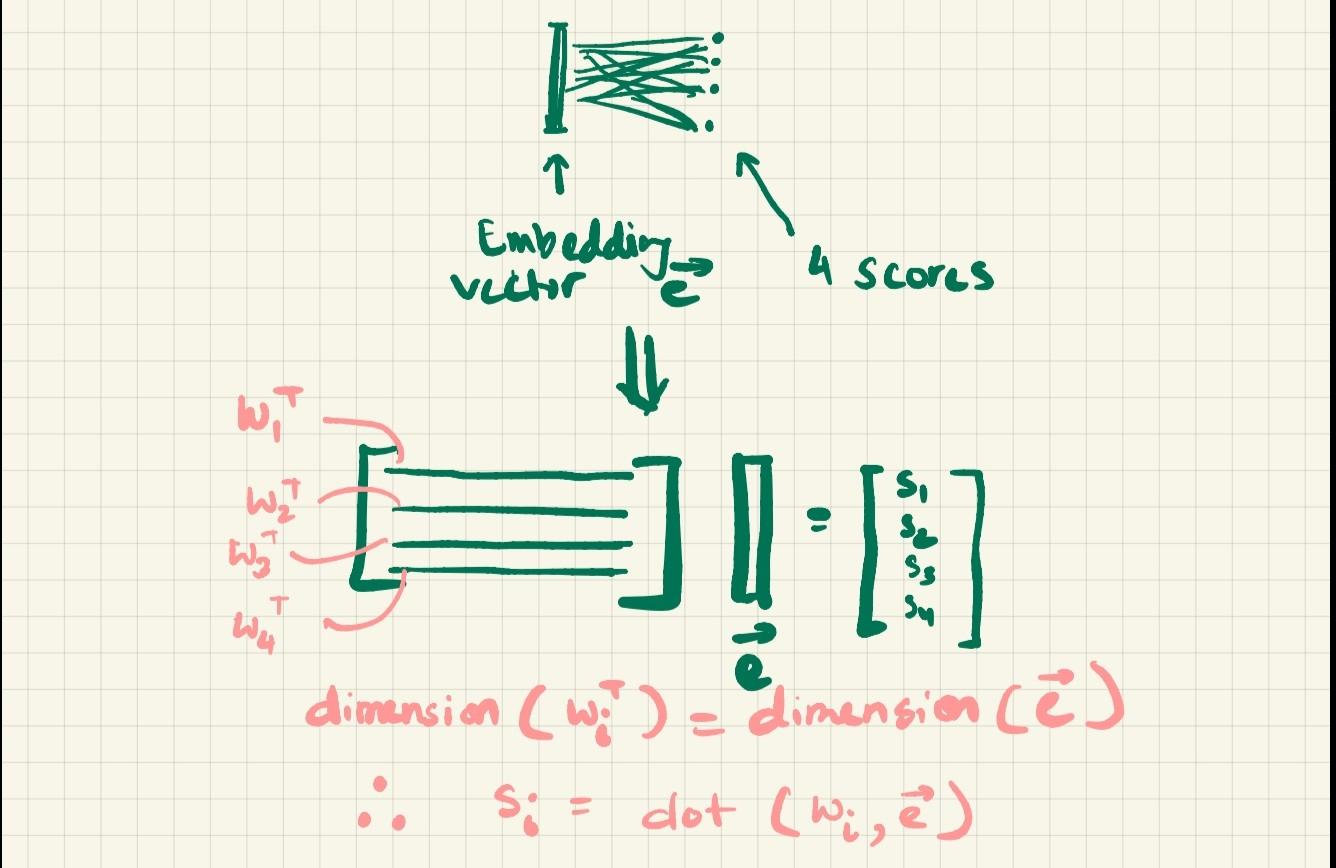 Embedding
vector e⃗
4 scores
w₁ᵀ
w₂ᵀ
w₃ᵀ
w₄ᵀ
=
s₁
s₂
s₃
s₄
e⃗
dimension (wᵢᵀ) = dimension (e⃗)
∴ sᵢ = dot (wᵢ, e⃗)